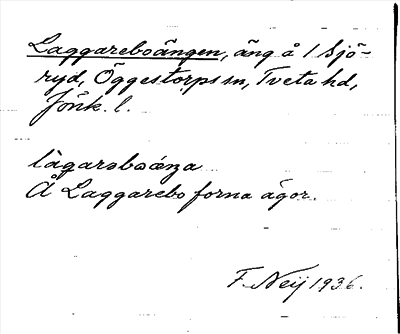 Laggareboängen, äng å 1 Sjö-
ryd, Öggestorps sn, Tveta hd,
Jönk. l.
lagarəboæŋa
Å Laggarebo forna ägor.
F. Neij 1936.